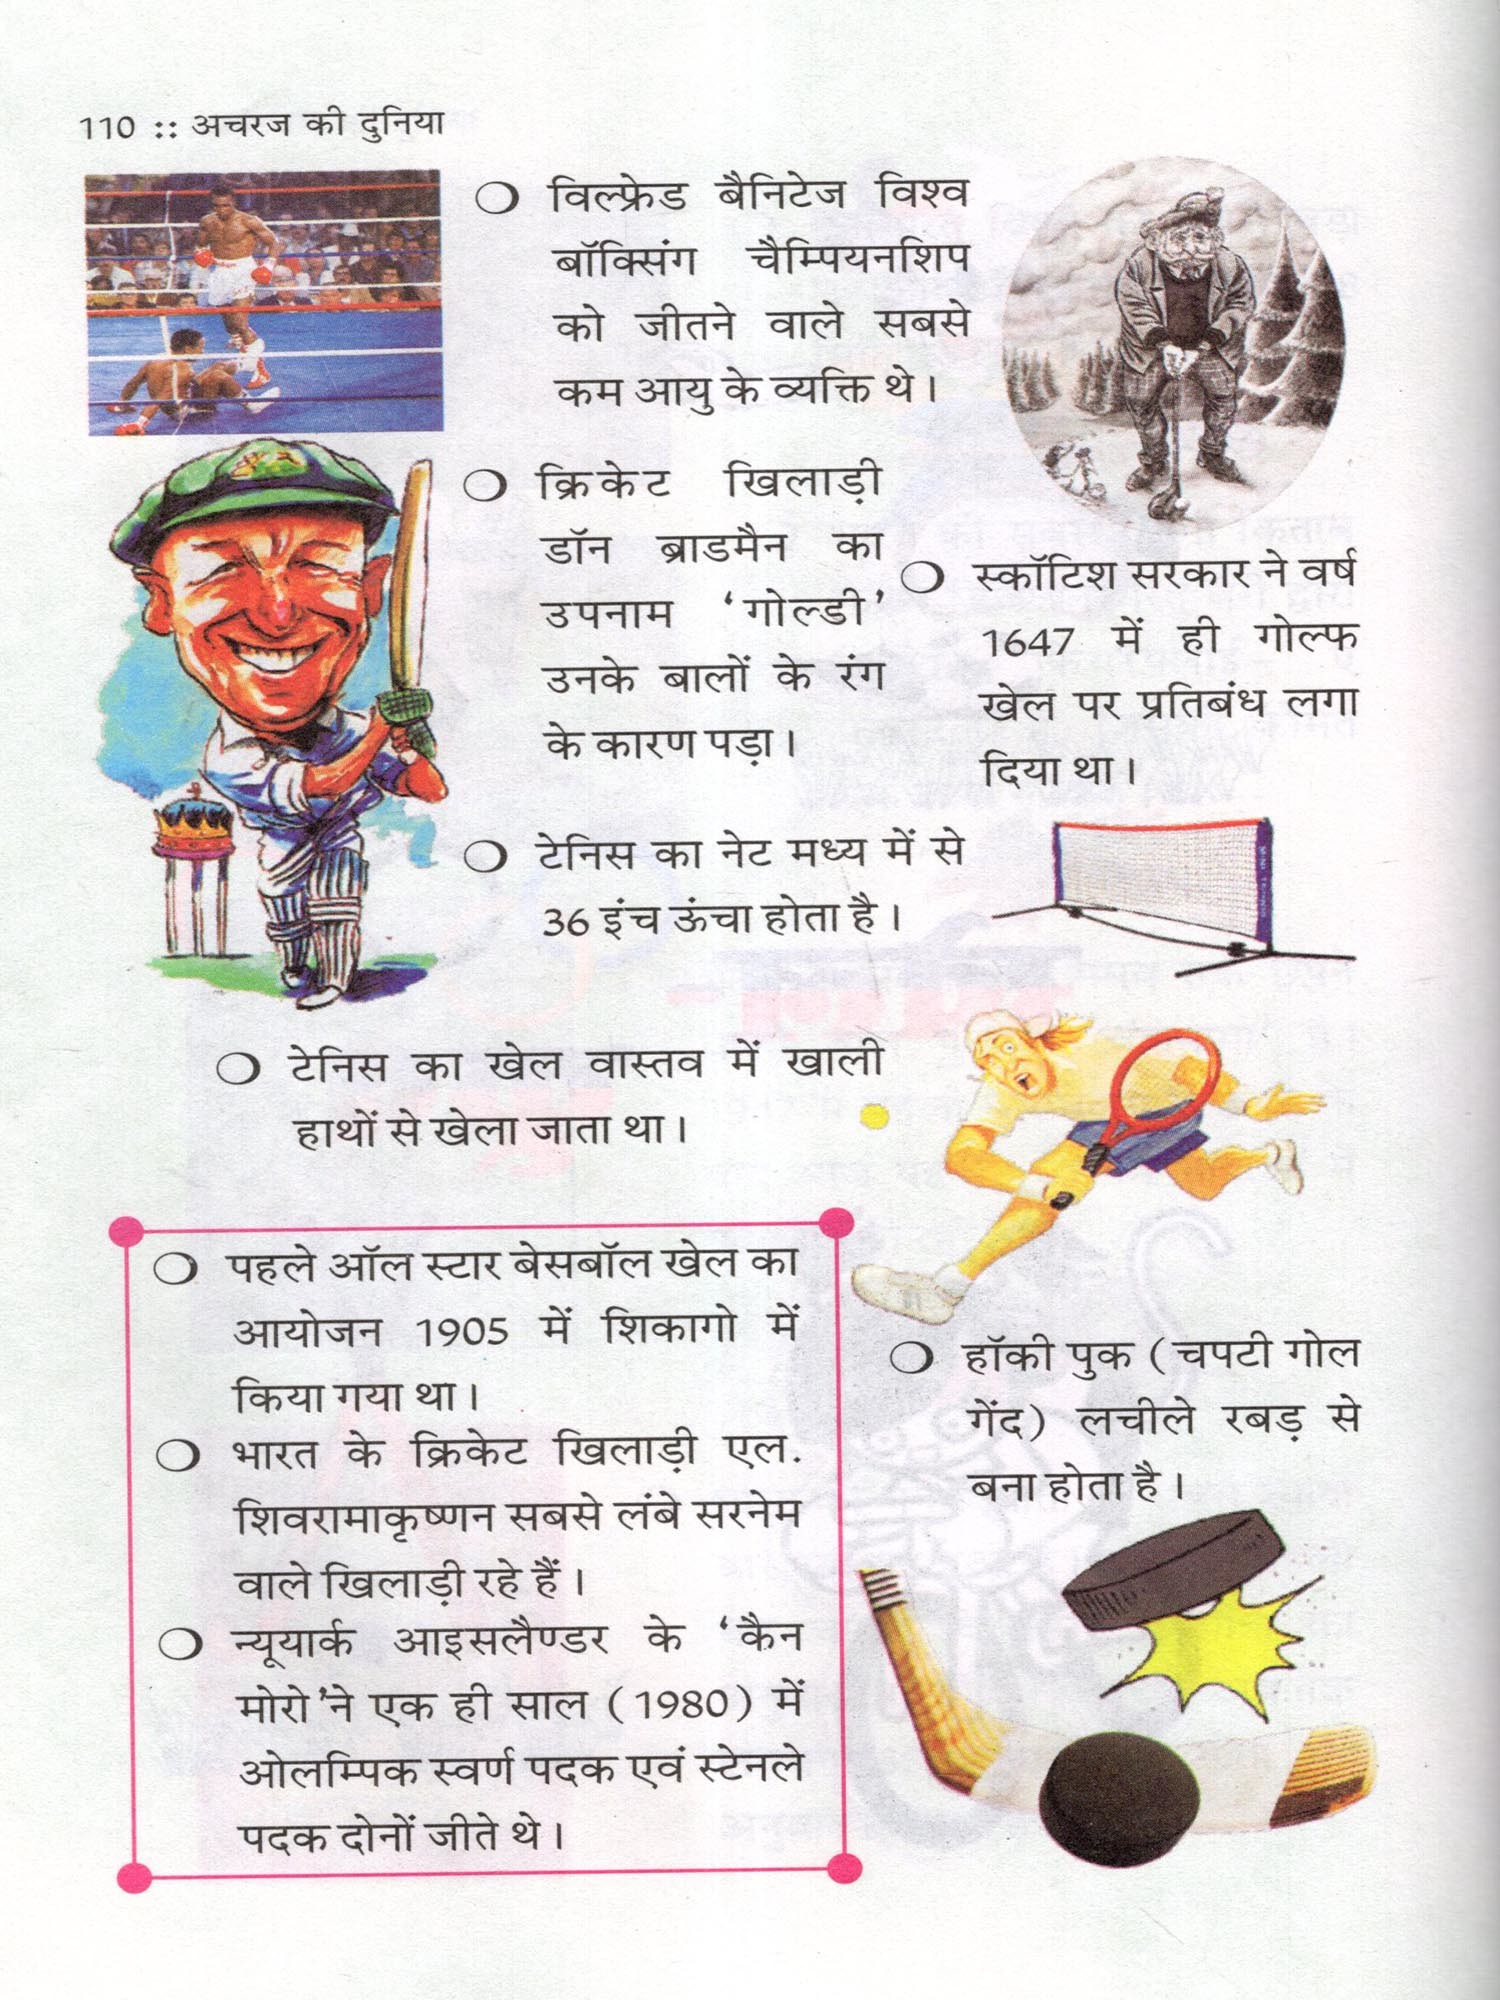 110 :: अचरज की दुनिया
विल्फ्रेड बैनिटेज विश्व
बॉक्सिंग चैम्पियनशिप
को जीतने वाले सबसे
कम आयु के व्यक्ति थे।
क्रिकेट खिलाड़ी
डॉन ब्राडमैन का
उपनाम ‘गोल्डी’
उनके बालों के रंग
के कारण पड़ा।
स्कॉटिश सरकार ने वर्ष
1647 में ही गोल्फ
खेल पर प्रतिबंध लगा
दिया था।
टेनिस का नेट मध्य में से
36 इंच ऊंचा होता है।
टेनिस का खेल वास्तव में खाली
हाथों से खेला जाता था।
पहले ऑल स्टार बेसबॉल खेल का
आयोजन 1905 में शिकागो में
किया गया था।
भारत के क्रिकेट खिलाड़ी एल.
शिवरामाकृष्णन सबसे लंबे सरनेम
वाले खिलाड़ी रहे हैं।
न्यूयार्क आइसलैण्डर के ‘कैन
मोरो’ने एक ही साल (1980) में
ओलम्पिक स्वर्ण पदक एवं स्टेनले
पदक दोनों जीते थे।
हॉकी पुक (चपटी गोल
गेंद) लचीले रबड़ से
बना होता है।